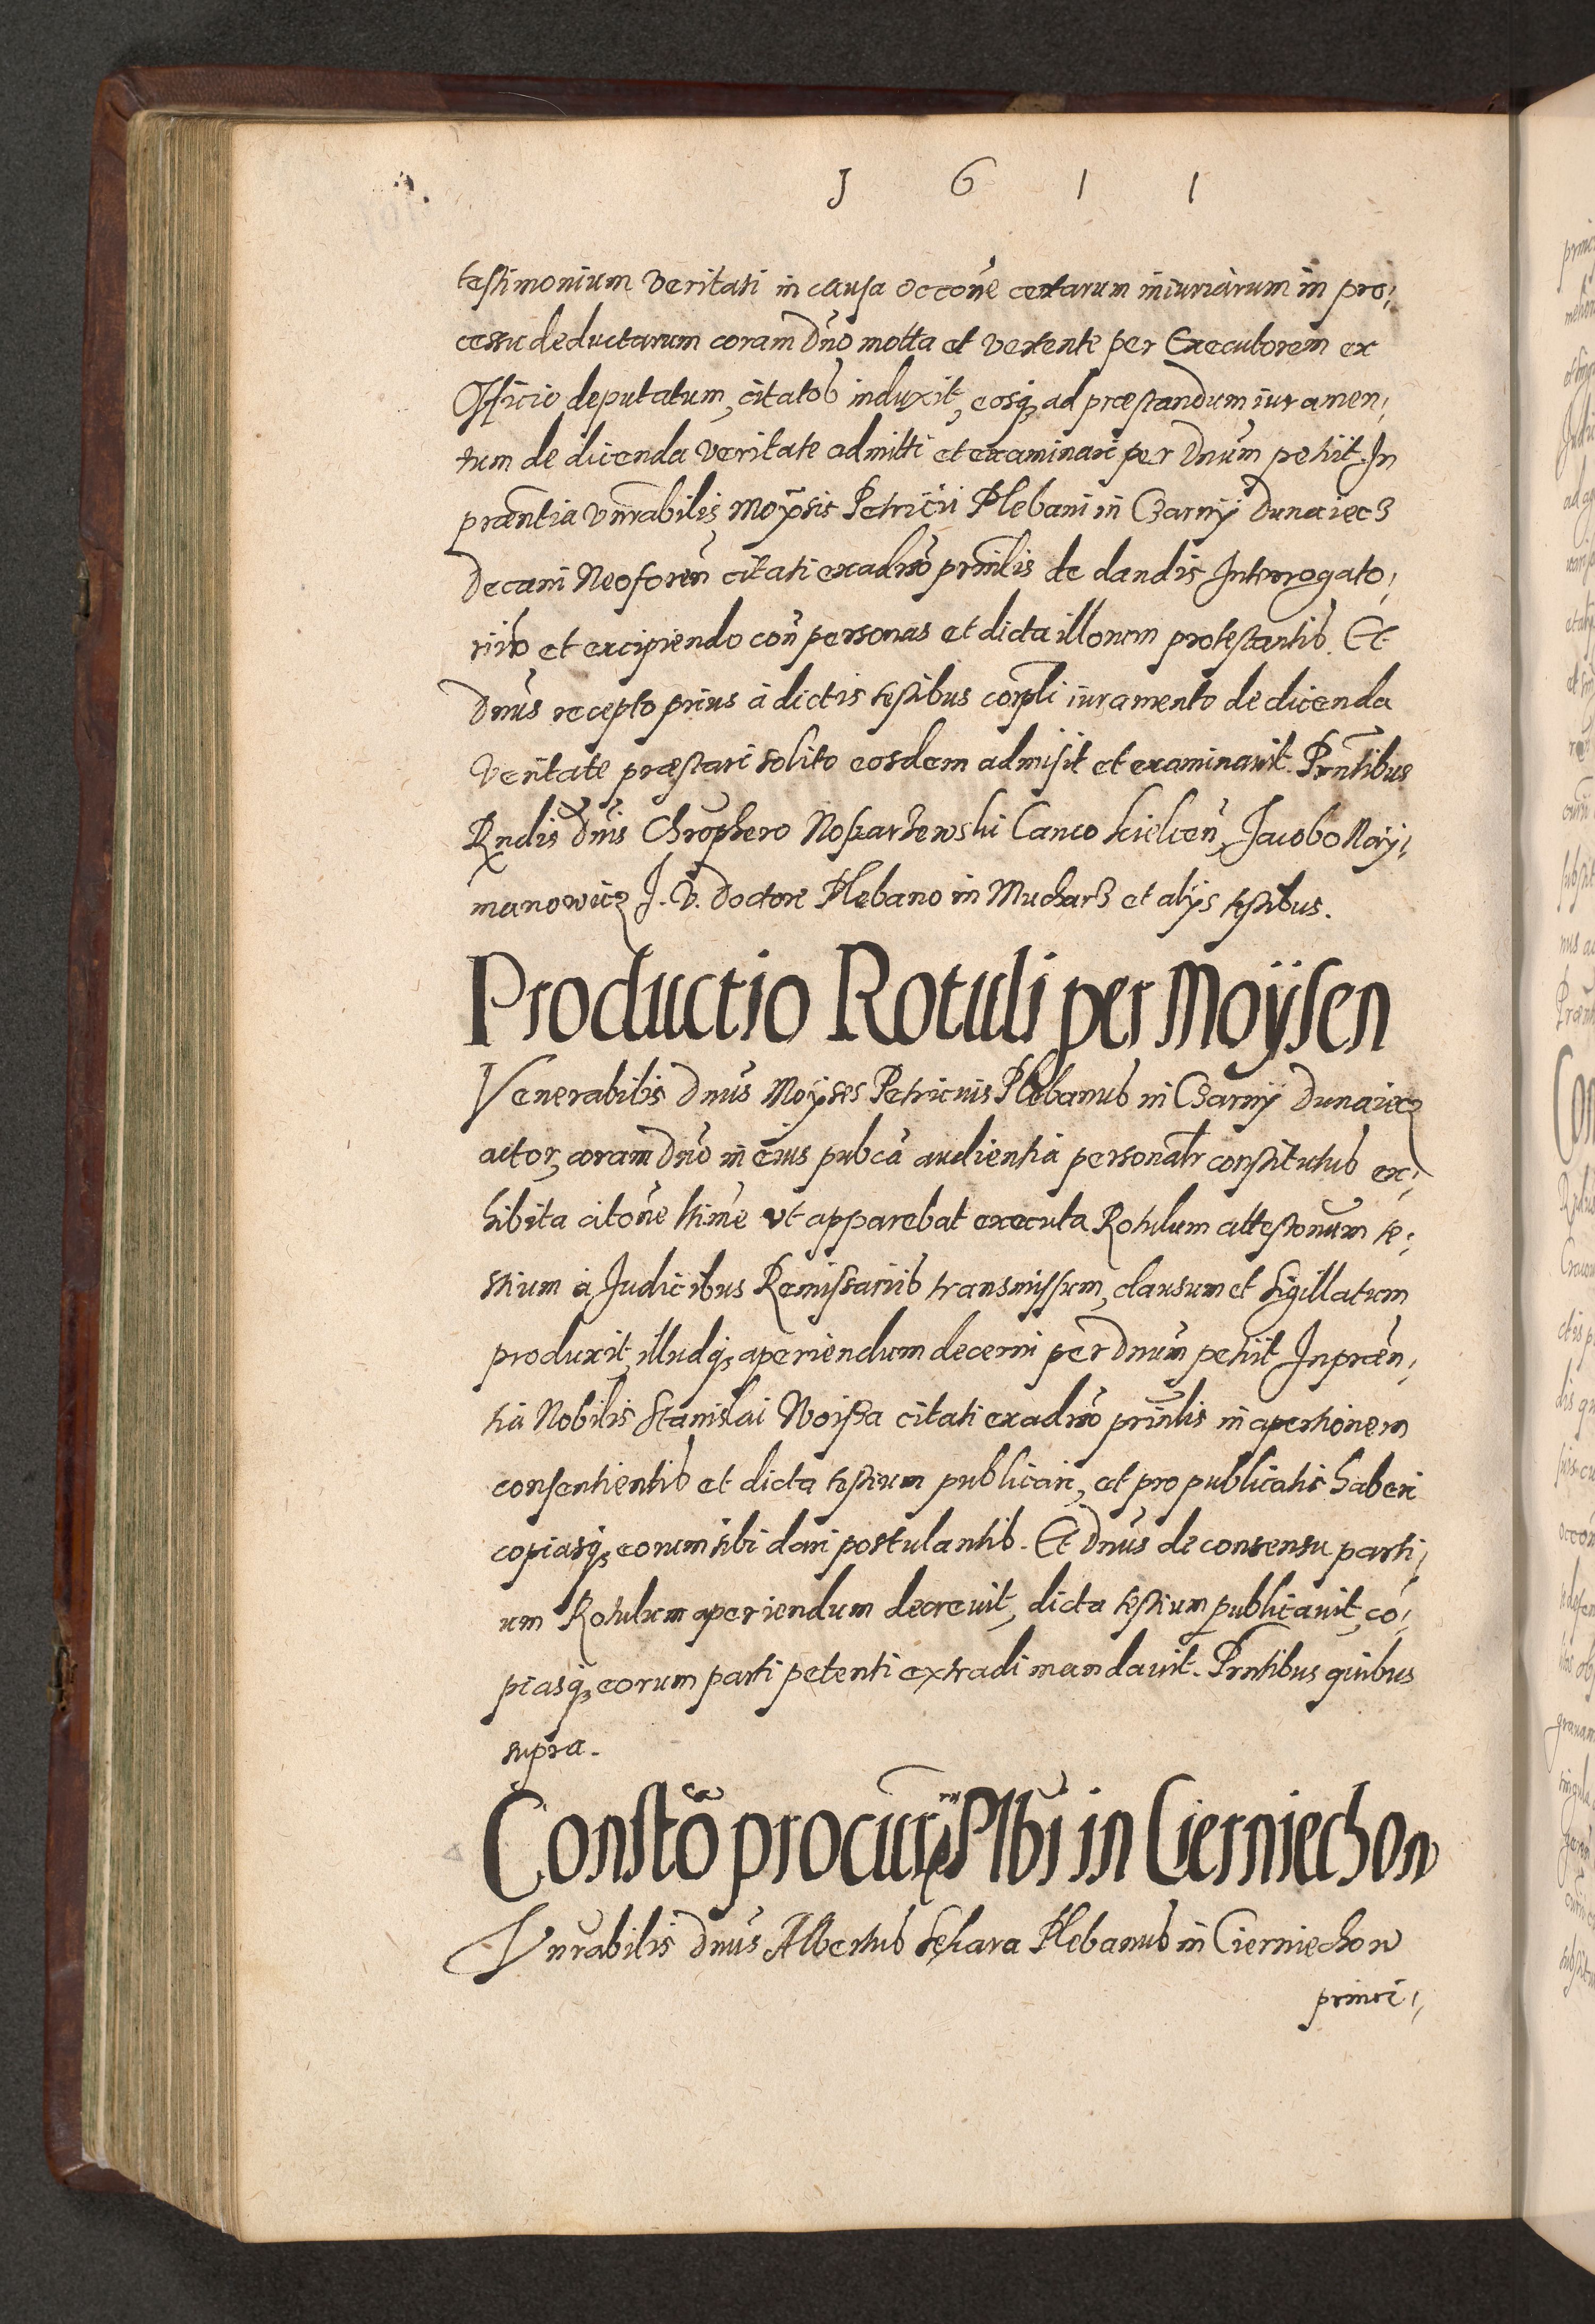 1 6 1 1
testimonium veritati in causa occōne certarum iniuriarum in pro¦
cessu deductarum coram Dno motta et vertente per Executorem ex
Officio deputatum, citatos induxit, eosq; ad præstandum iuramen¦
tum de dicenda veritate admitti et examinari per Dnum petiit. In
præntia vnrabilis Moÿsis Petricii Plebani in Czarnÿ Dunaiecz
Decani Neoforen̄ citati ex adŭo prinlis de dandis Interrogato¦
riis et excipiendo con̄ personas et dicta illorum protestantis. Et
Dnus recepto prius à dictis testibus corpli iuramento de dicenda
veritate præstari solito eosdem admisit et examinavit. Prntibus
Rndis Dnis Chrophero Noskarzewski Canco kielcen̄, Jacobo Nay¦
manowicz J. V. Doctore Plebano in Mucharz et alijs testibus.
Productio Rotuli per Moÿsen
Venerabilis Dnus Moÿses Petricius Plebanus in Czarnÿ Dunaiecz
actor, coram Dno in eius pubca audientia personalr constitutus ex¦
hibita citōne ltime vt apparebat executa Rotulum attestonum te¦
stium à Judicibus Remissariis transmissum, clausum et sigillatum
produxit, illudq; aperiendum decerni per Dnum petiit. In præn¦
tia Nobilis Stanislai Woissa citati ex adŭo prinlis in apertionem
consentientis et dicta testium publicari, et pro publicatis haberi
copiasq; eorum sibi dari postulantis. Et Dnus de consensu parti¦
um Rotulum aperiendum decrevit, dicta testium publicavit, co¦
piasq; eorum parti petenti extradi mandavit. Prntibus quibus
supra.
Constō procurrm Plbi in Cierniechow
Vnrabilis Dnus Albertus Plebanus in Cierniechow
princi¦